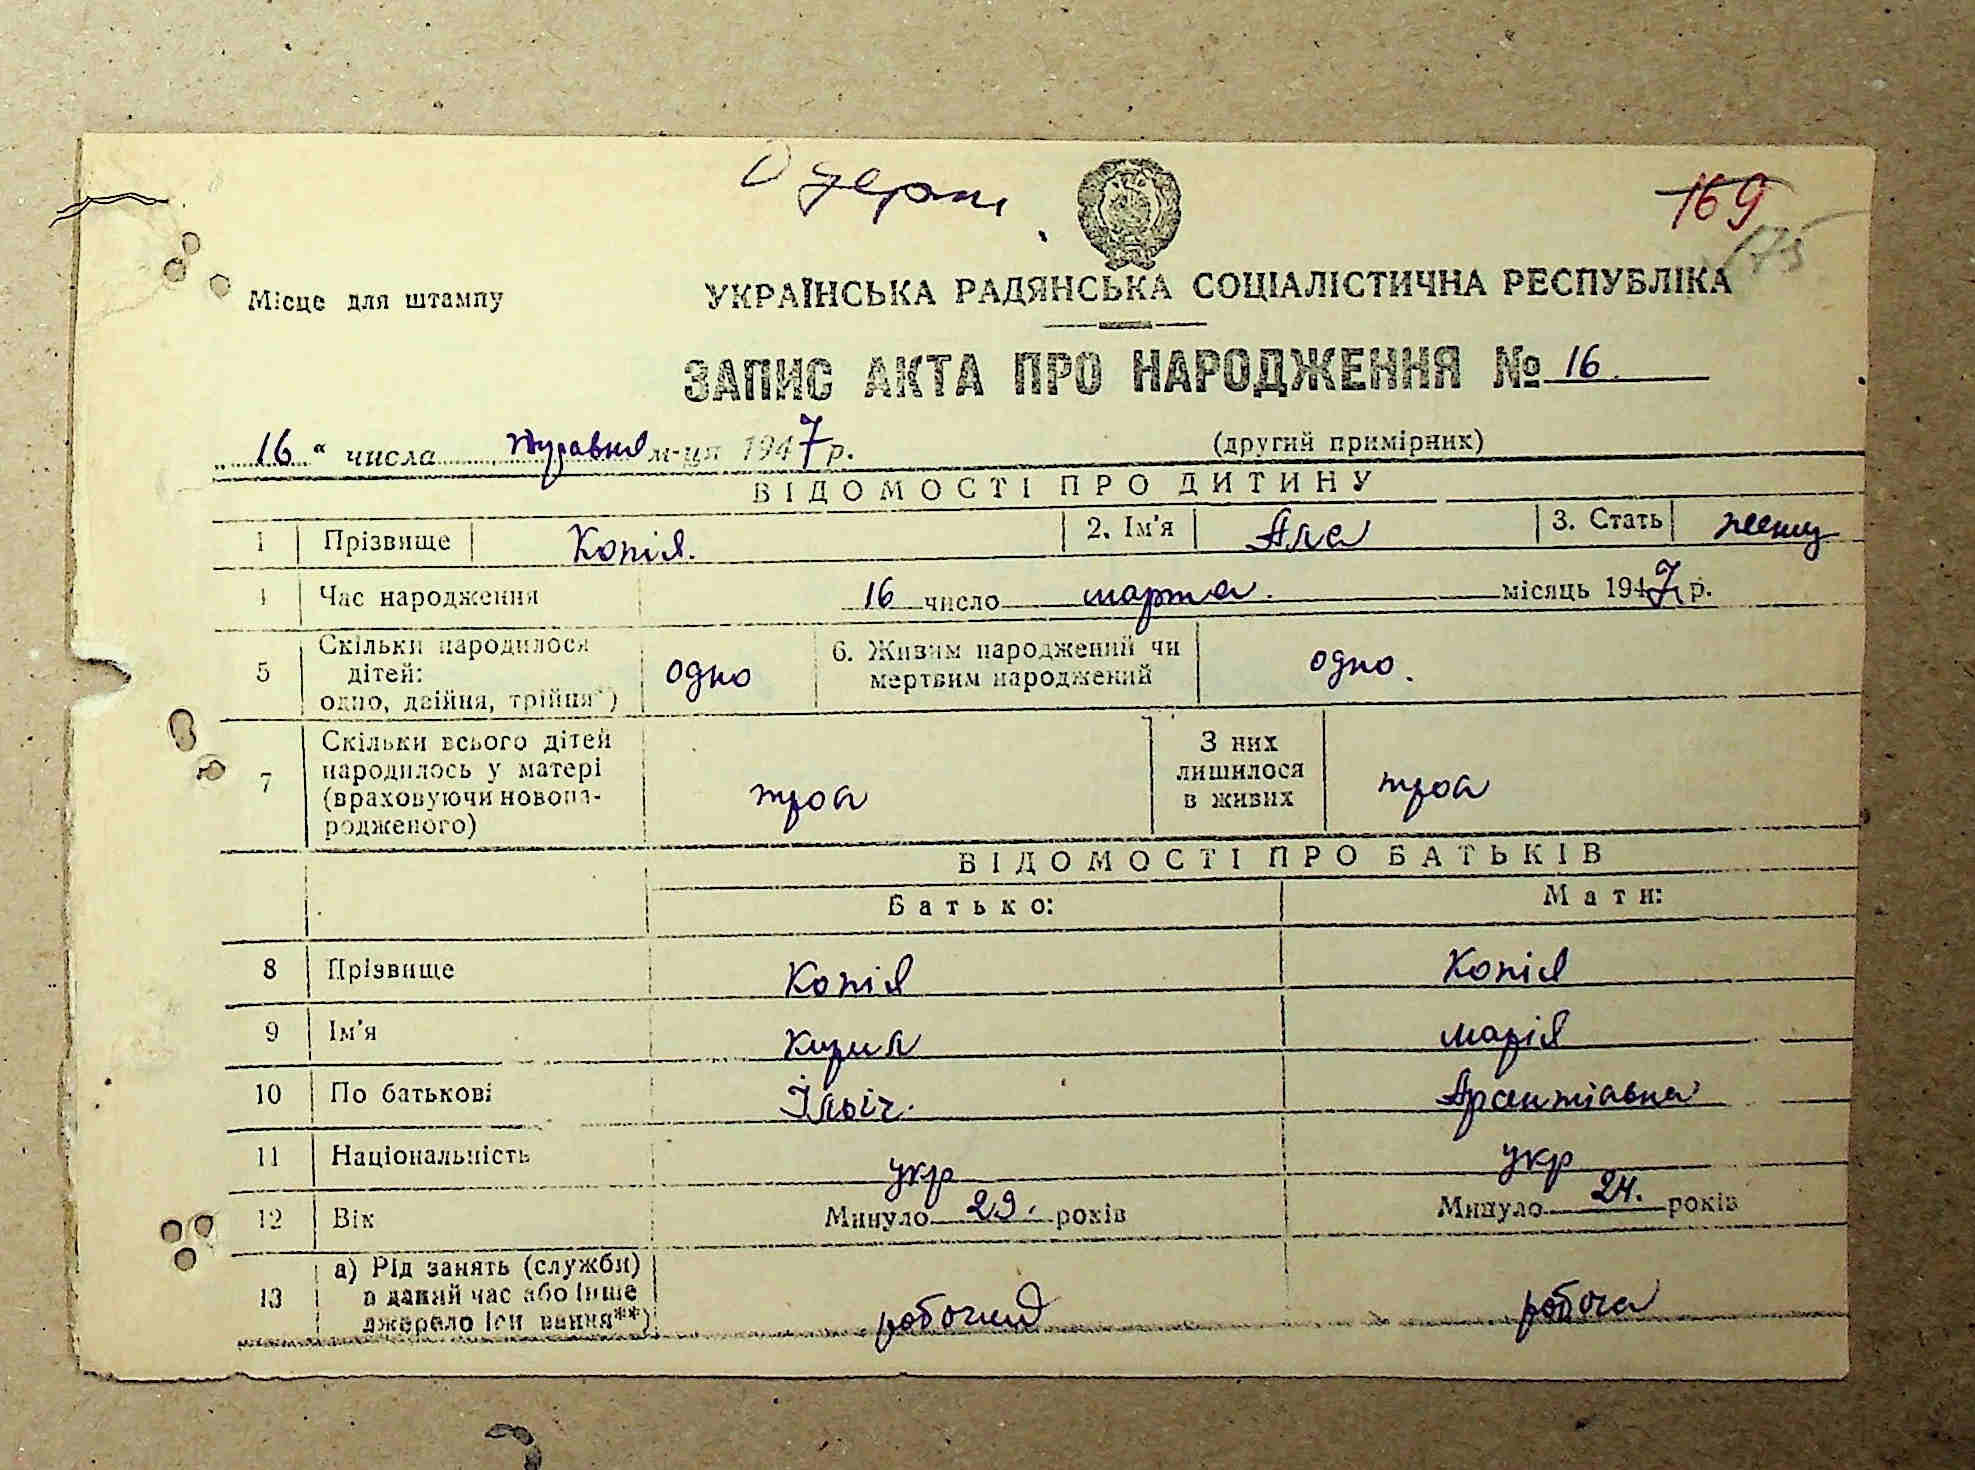 169
175
Місце для штампу
УКРАЇНСЬКА РАДЯНСЬКА СОЦІАЛІСТИЧНА РЕСПУБЛІКА
ЗАПИС АКТА ПРО НАРОДЖЕННЯ № 16
„16“ числа травня м-ця 1947 р. (другий примірник)
ВІДОМОСТІ ПРО ДИТИНУ
1 Прізвище Копія. 2. Ім'я Ала 3. Стать жен
4 Час народження 16 число марта. місяць 1947 р.
5 Скільки народилося
дітей:
одно, двійня, трійня*) одно
6. Живим народжений чи
мертвим народжений одно.
7 Скільки всього дітей
народилось у матері
(враховуючи новона-
родженого) троа
З них
лишилося
в живих троа
ВІДОМОСТІ ПРО БАТЬКІВ
Батько: Мати:
8 Прізвище Копія Копія
9 Ім'я Кирил Марія
10 По батькові Ільіч.
11 Національність укр укр
12 Вік Минуло 29. років Минуло 24. років
13 а) Рід занять (служби)
в даний час або інше
джерело існ вання**) робочий робоча